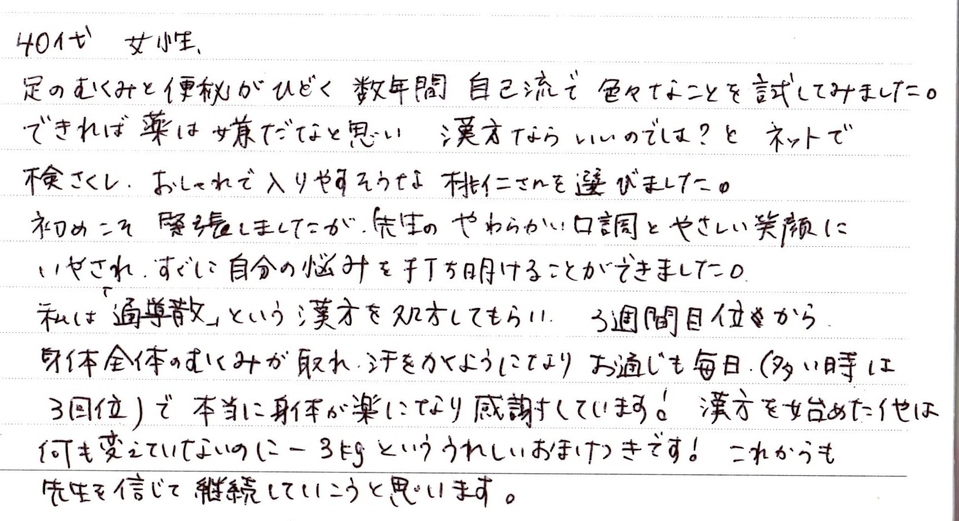 40代 女性、
足のむくみと便秘がひどく 数年間 自己流で 色々なことを試してみました。
できれば 薬は嫌だなと思い 漢方なら いいのでは?と ネットで
検さくし、おしゃれで入りやすそうな 桃仁さんを選びました。
初めこそ 緊張しましたが、先生の やわらかい口調と やさしい笑顔に
いやされ、すぐに自分の悩みを打ち明けることができました。
私は「通導散」という漢方を処方してもらい 3週間目位から
身体全体のむくみが取れ、汗をかくようになり お通じも毎日、(多い時は
3回位)で 本当に身体が楽になり感謝しています! 漢方を始めた他は
何も変えていないのに−3kgといううれしいおまけつきです! これからも
先生を信じて継続していこうと思います。